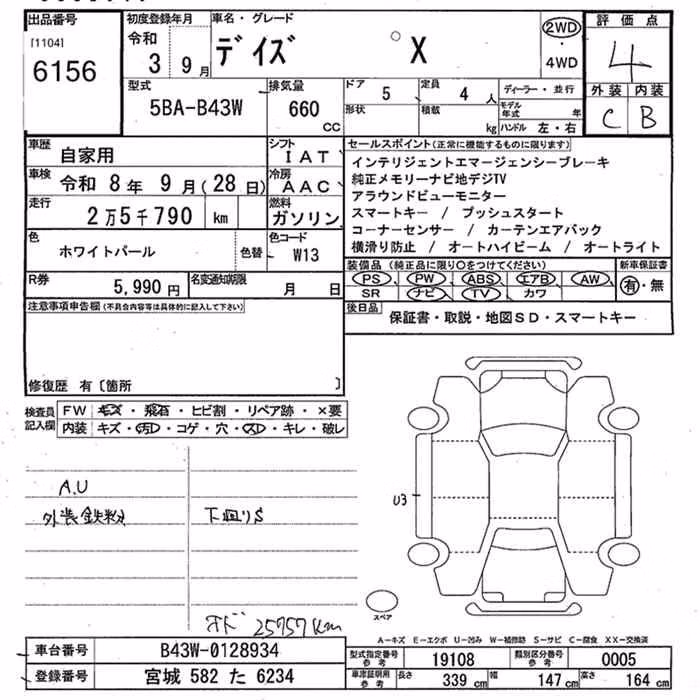 出品番号
[1104]
6156
初度登録年月
令和
3 9月
車名・グレード
デイズ X
2WD
・
4WD
評価点
4
外装 内装
C B
型式
5BA-B43W
排気量
660
CC
ドア 5
形状
定員 4 人
積載 kg
ディーラー・並行
モデル年式 年
ハンドル 左・右
車歴 自家用
シフト
IAT
車検 令和 8年 9月(28日)
冷房
AAC
走行 2万5千790 km
燃料
ガソリン
色 ホワイトパール 色替
色コード
W13
R券 5,990円
名変通知期限 月 日
セールスポイント(正常に機能するものに限ります)
インテリジェントエマージェンシーブレーキ
純正メモリーナビ地デジTV
アラウンドビューモニター
スマートキー / プッシュスタート
コーナーセンサー / カーテンエアバック
横滑り防止 / オートハイビーム / オートライト
装備品(純正品に限り○をつけてください)
PS PW ABS エアB AW
SR ナビ TV カワ
新車保証書
有・無
後日品 保証書・取説・地図SD・スマートキー
注意事項申告欄(不具合内容等は具体的に記入して下さい)
修復歴 有〔箇所 〕
検査員記入欄
FW キズ・飛石・ヒビ割・リペア跡・×要
内装 キズ・汚れ・コゲ・穴・スレ・キレ・破レ
A.U
外装鉄粉
下回りS
オド 25757km
U3
スペア
A-キズ E-エクボ U-凹み W-補修跡 S-サビ C-腐食 XX-交換済
車台番号 B43W-0128934
登録番号 宮城 582 た 6234
型式指定番号
参考 19108
類別区分番号
参考 0005
車庫証明用
参考 長さ 339 cm 幅 147 cm 高さ 164 cm